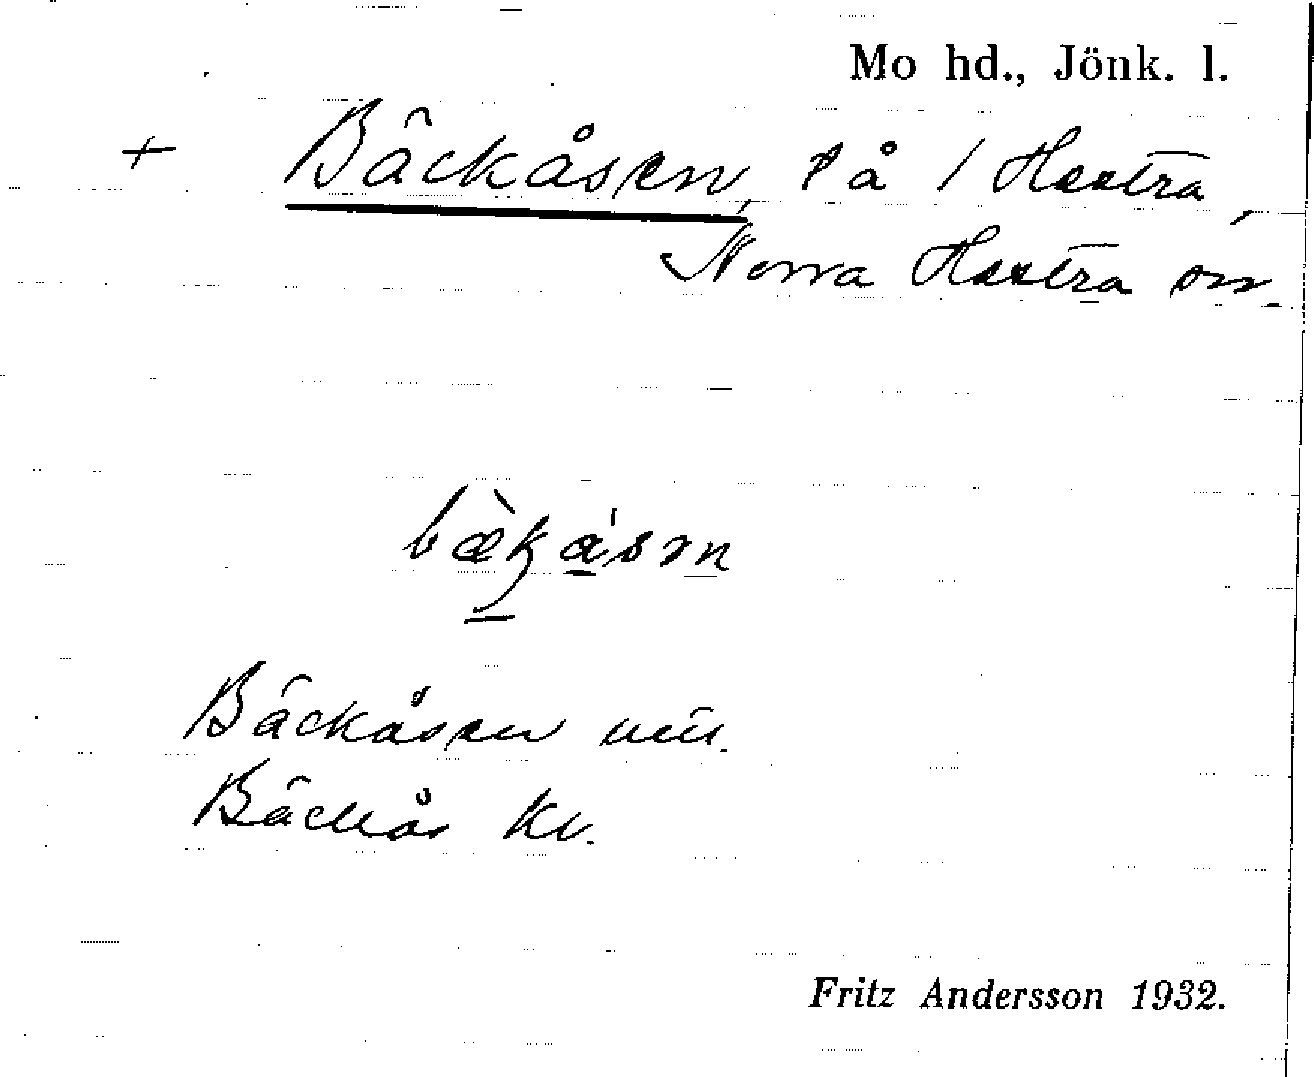 Mo hd., Jönk. l.
+ Bäckåsen, på 1 Hestra,
Norra Hestra sn.
bækåsən
Bäckåsen mu.
Bäckås Kv.
Fritz Andersson 1932.